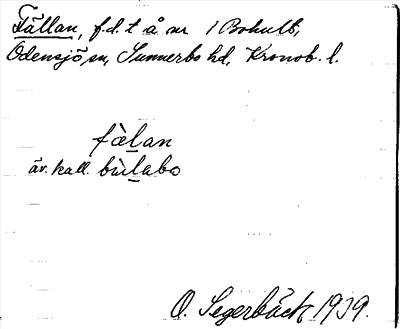 Fällan, f.d. t å nr 1 Bohult,
Odensjö sn, Sunnerbo hd, Kronob. l.
fàlan
äv. kall. bùlabo
O. Segerbäck 1939.